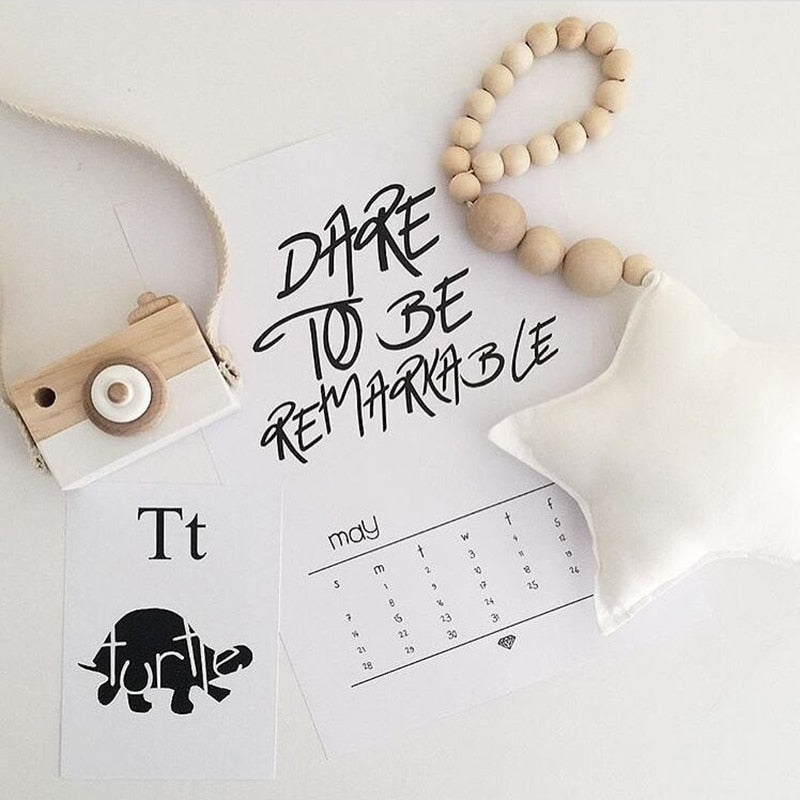 DARE
TO BE
REMARKABLE
may
s m t w t f
1 2 3 4 5
7 8 9 10 11 12
14 15 16 17 18 19
21 22 23 24 25 26
28 29 30 31
Tt
turtle